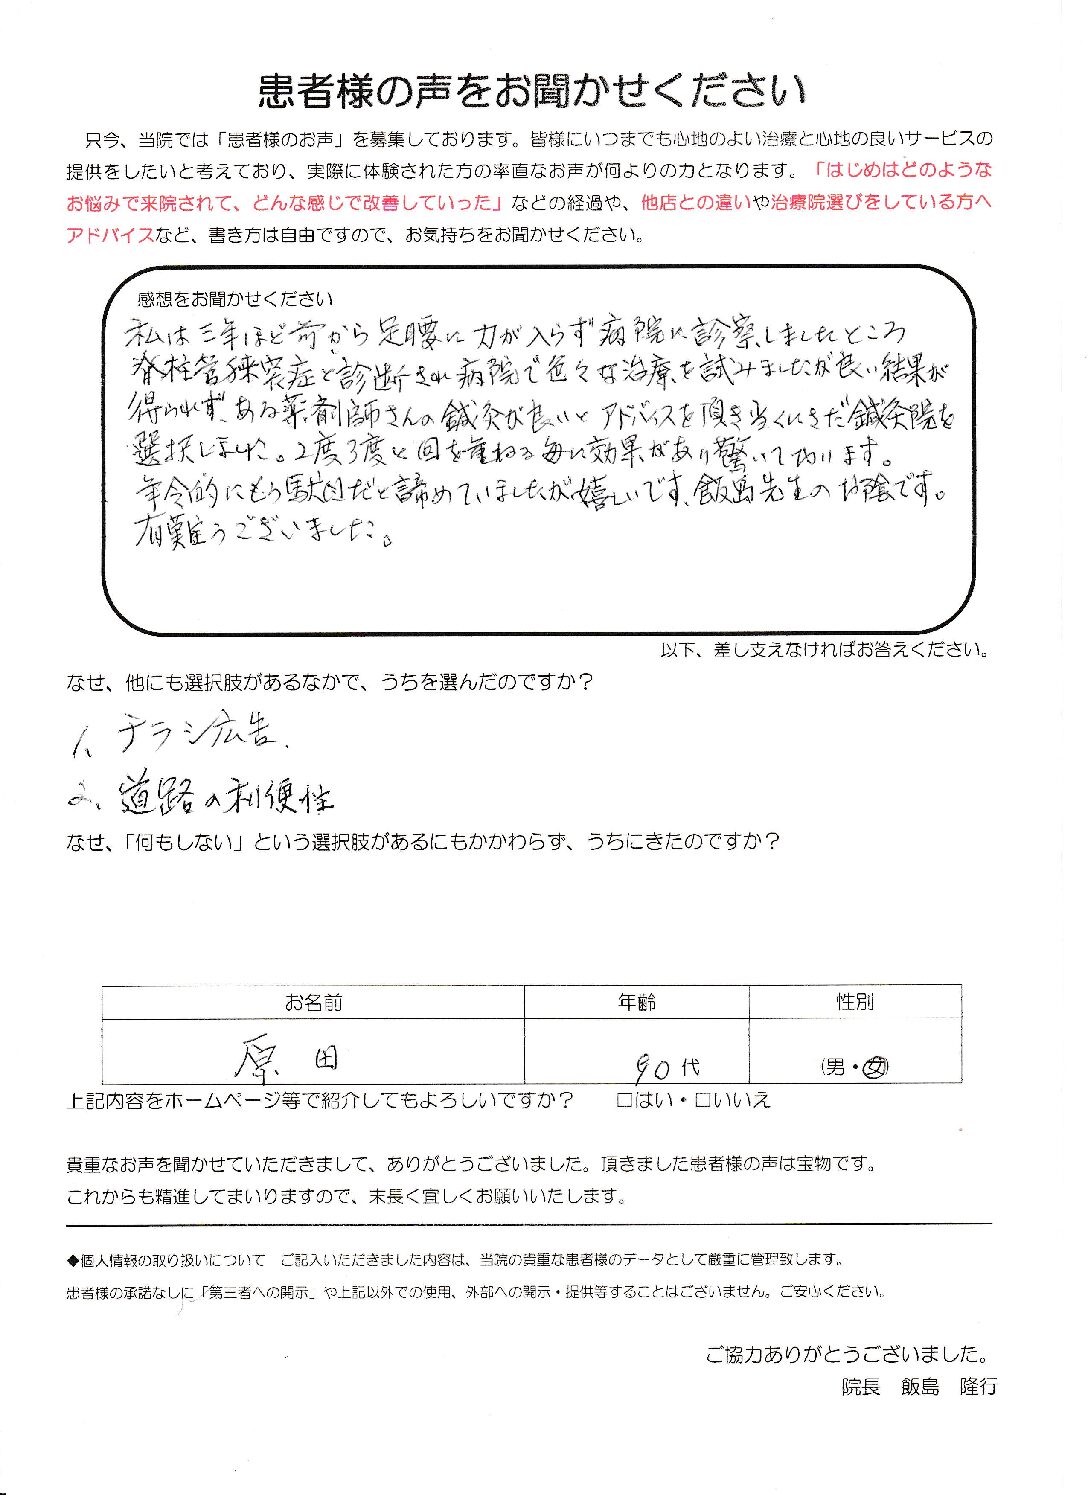 患者様の声をお聞かせください
只今、当院では「患者様のお声」を募集しております。皆様にいつまでも心地のよい治療と心地の良いサービスの
提供をしたいと考えており、実際に体験された方の率直なお声が何よりの力となります。「はじめはどのような
お悩みで来院されて、どんな感じで改善していった」などの経過や、他店との違いや治療院選びをしている方へ
アドバイスなど、書き方は自由ですので、お気持ちをお聞かせください。
感想をお聞かせください
私は三年ほど前から足腰に力が入らず病院に診察しましたところ
脊柱管狭窄症と診断され病院で色々な治療を試みましたが良い結果が
得られず、ある薬剤師さんの鍼灸が良いとアドバイスを頂き当くにきだ鍼灸院を
選択しました。2度3度と回を重ねる毎に効果があり驚いて居ります。
年令的にもう駄目だと諦めていましたが嬉しいです、飯島先生のお陰です。
有難うございました。
以下、差し支えなければお答えください。
なぜ、他にも選択肢があるなかで、うちを選んだのですか？
1、チラシ広告、
2、道路の利便性
なぜ、「何もしない」という選択肢があるにもかかわらず、うちにきたのですか？
お名前 年齢 性別
原田 90代 (男・女)
上記内容をホームページ等で紹介してもよろしいですか？ □はい・□いいえ
貴重なお声を聞かせていただきまして、ありがとうございました。頂きました患者様の声は宝物です。
これからも精進してまいりますので、末長く宜しくお願いいたします。
◆個人情報の取り扱いについて ご記入いただきました内容は、当院の貴重な患者様のデータとして厳重に管理致します。
患者様の承諾なしに「第三者への開示」や上記以外での使用、外部への開示・提供等することはございません。ご安心ください。
ご協力ありがとうございました。
院長 飯島 隆行